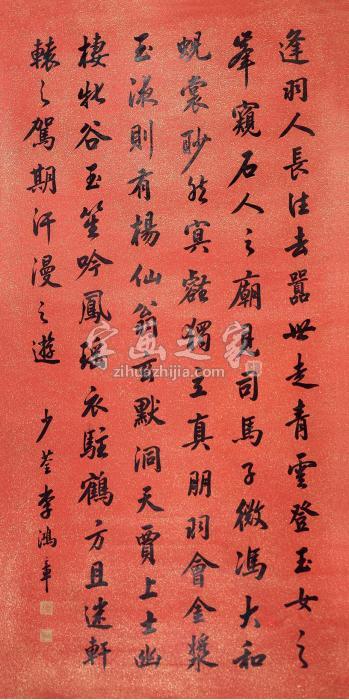 逢羽人長往去囂世走青雲登玉女之
峯窺石人之廟見司馬子微馮大和
蜺裳眇然冥壑獨立真朋羽會金漿
玉液則有楊仙翁玄默洞天賈上士幽
棲牝谷玉笙吟鳳瑤衣駐鶴方且迷軒
轅之駕期汗漫之遊
少荃李鴻章
字画之家
zihuazhijia.com